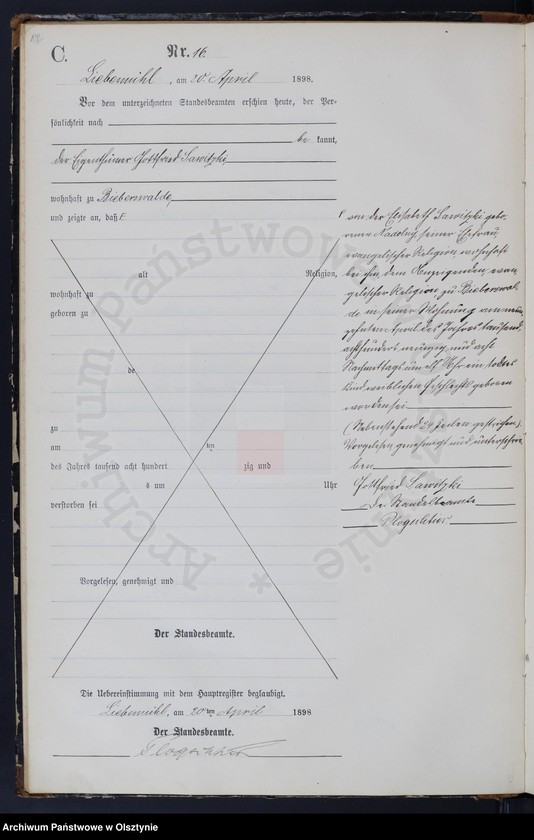 C.
Nr. 16.
Liebemühl, am 20 April 1898.
Vor dem unterzeichneten Standesbeamten erschien heute, der Per-
sönlichkeit nach
be kannt,
der Eigenthümer Gottfried Sawitzki
wohnhaft zu Bieberswalde
und zeigte an, daß
von der Elisabeth Sawitzki gebo-
renen Nadolny, seiner Ehefrau,
evangelischer Religion, wohnhaft
bei ihm, dem Anzeigenden, evan
gelischer Religion, zu Bieberswal
de in seiner Wohnung am neun
zehnten April des Jahres tausend
achthundert neunzig und acht
Nachmittags um elf Uhr ein todtes
Kind weiblichen Geschlechts geboren
worden sei
(Nebenstehend 24 Zeilen gestrichen).
Vorgelesen, genehmigt und unterschrie
ben
Gottfried Sawitzki
Der Standesbeamte
alt
Religion,
wohnhaft zu
geboren zu
de
zu
am
ten
des Jahres tausend acht hundert zig und
s um Uhr
verstorben sei
Vorgelesen, genehmigt und
Der Standesbeamte.
Die Uebereinstimmung mit dem Hauptregister beglaubigt.
Liebemühl, am 20ten April 1898
Der Standesbeamte.
Archiwum Państwowe w Olsztynie